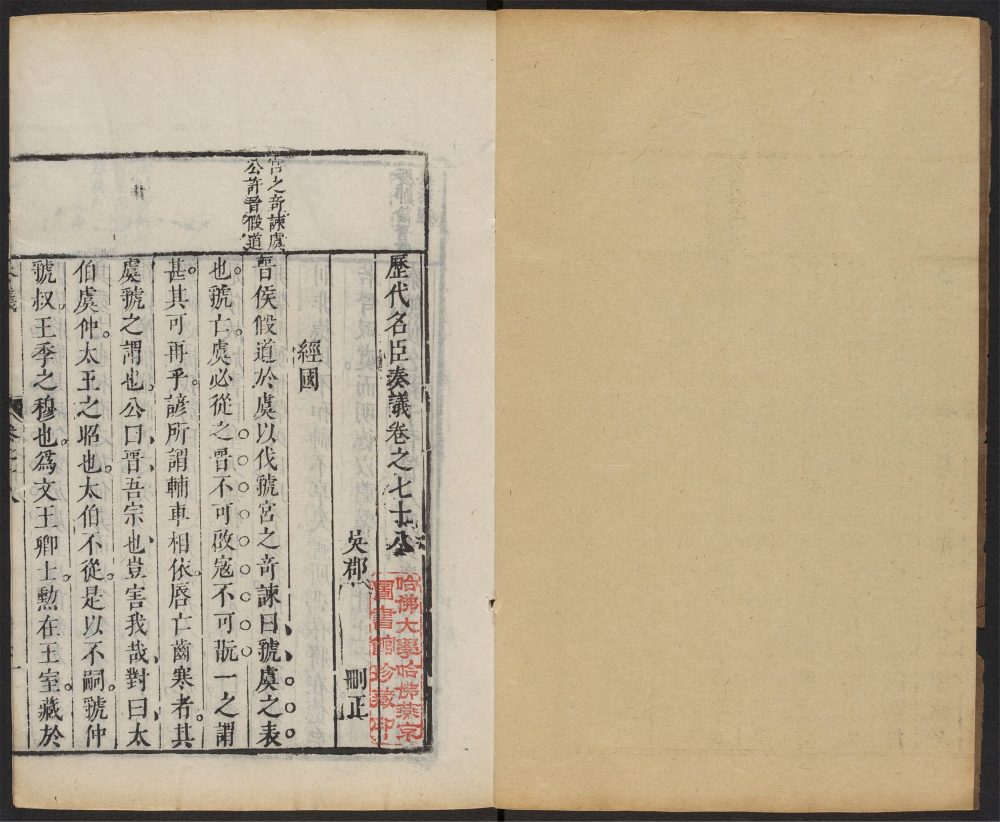 歷代名臣奏議卷之七十八
吳郡 刪正
經國
宮之奇諫虞
公許晉假道
晉侯假道於虞以伐虢宮之奇諫曰虢虞之表
也虢亡虞必從之晉不可啟寇不可翫一之謂
甚其可再乎諺所謂輔車相依唇亡齒寒者其
虞虢之謂也公曰晉吾宗也豈害我哉對曰太
伯虞仲太王之昭也太伯不從是以不嗣虢仲
虢叔王季之穆也爲文王卿士勲在王室藏於
哈佛大學哈佛燕京
圖書館珍藏印